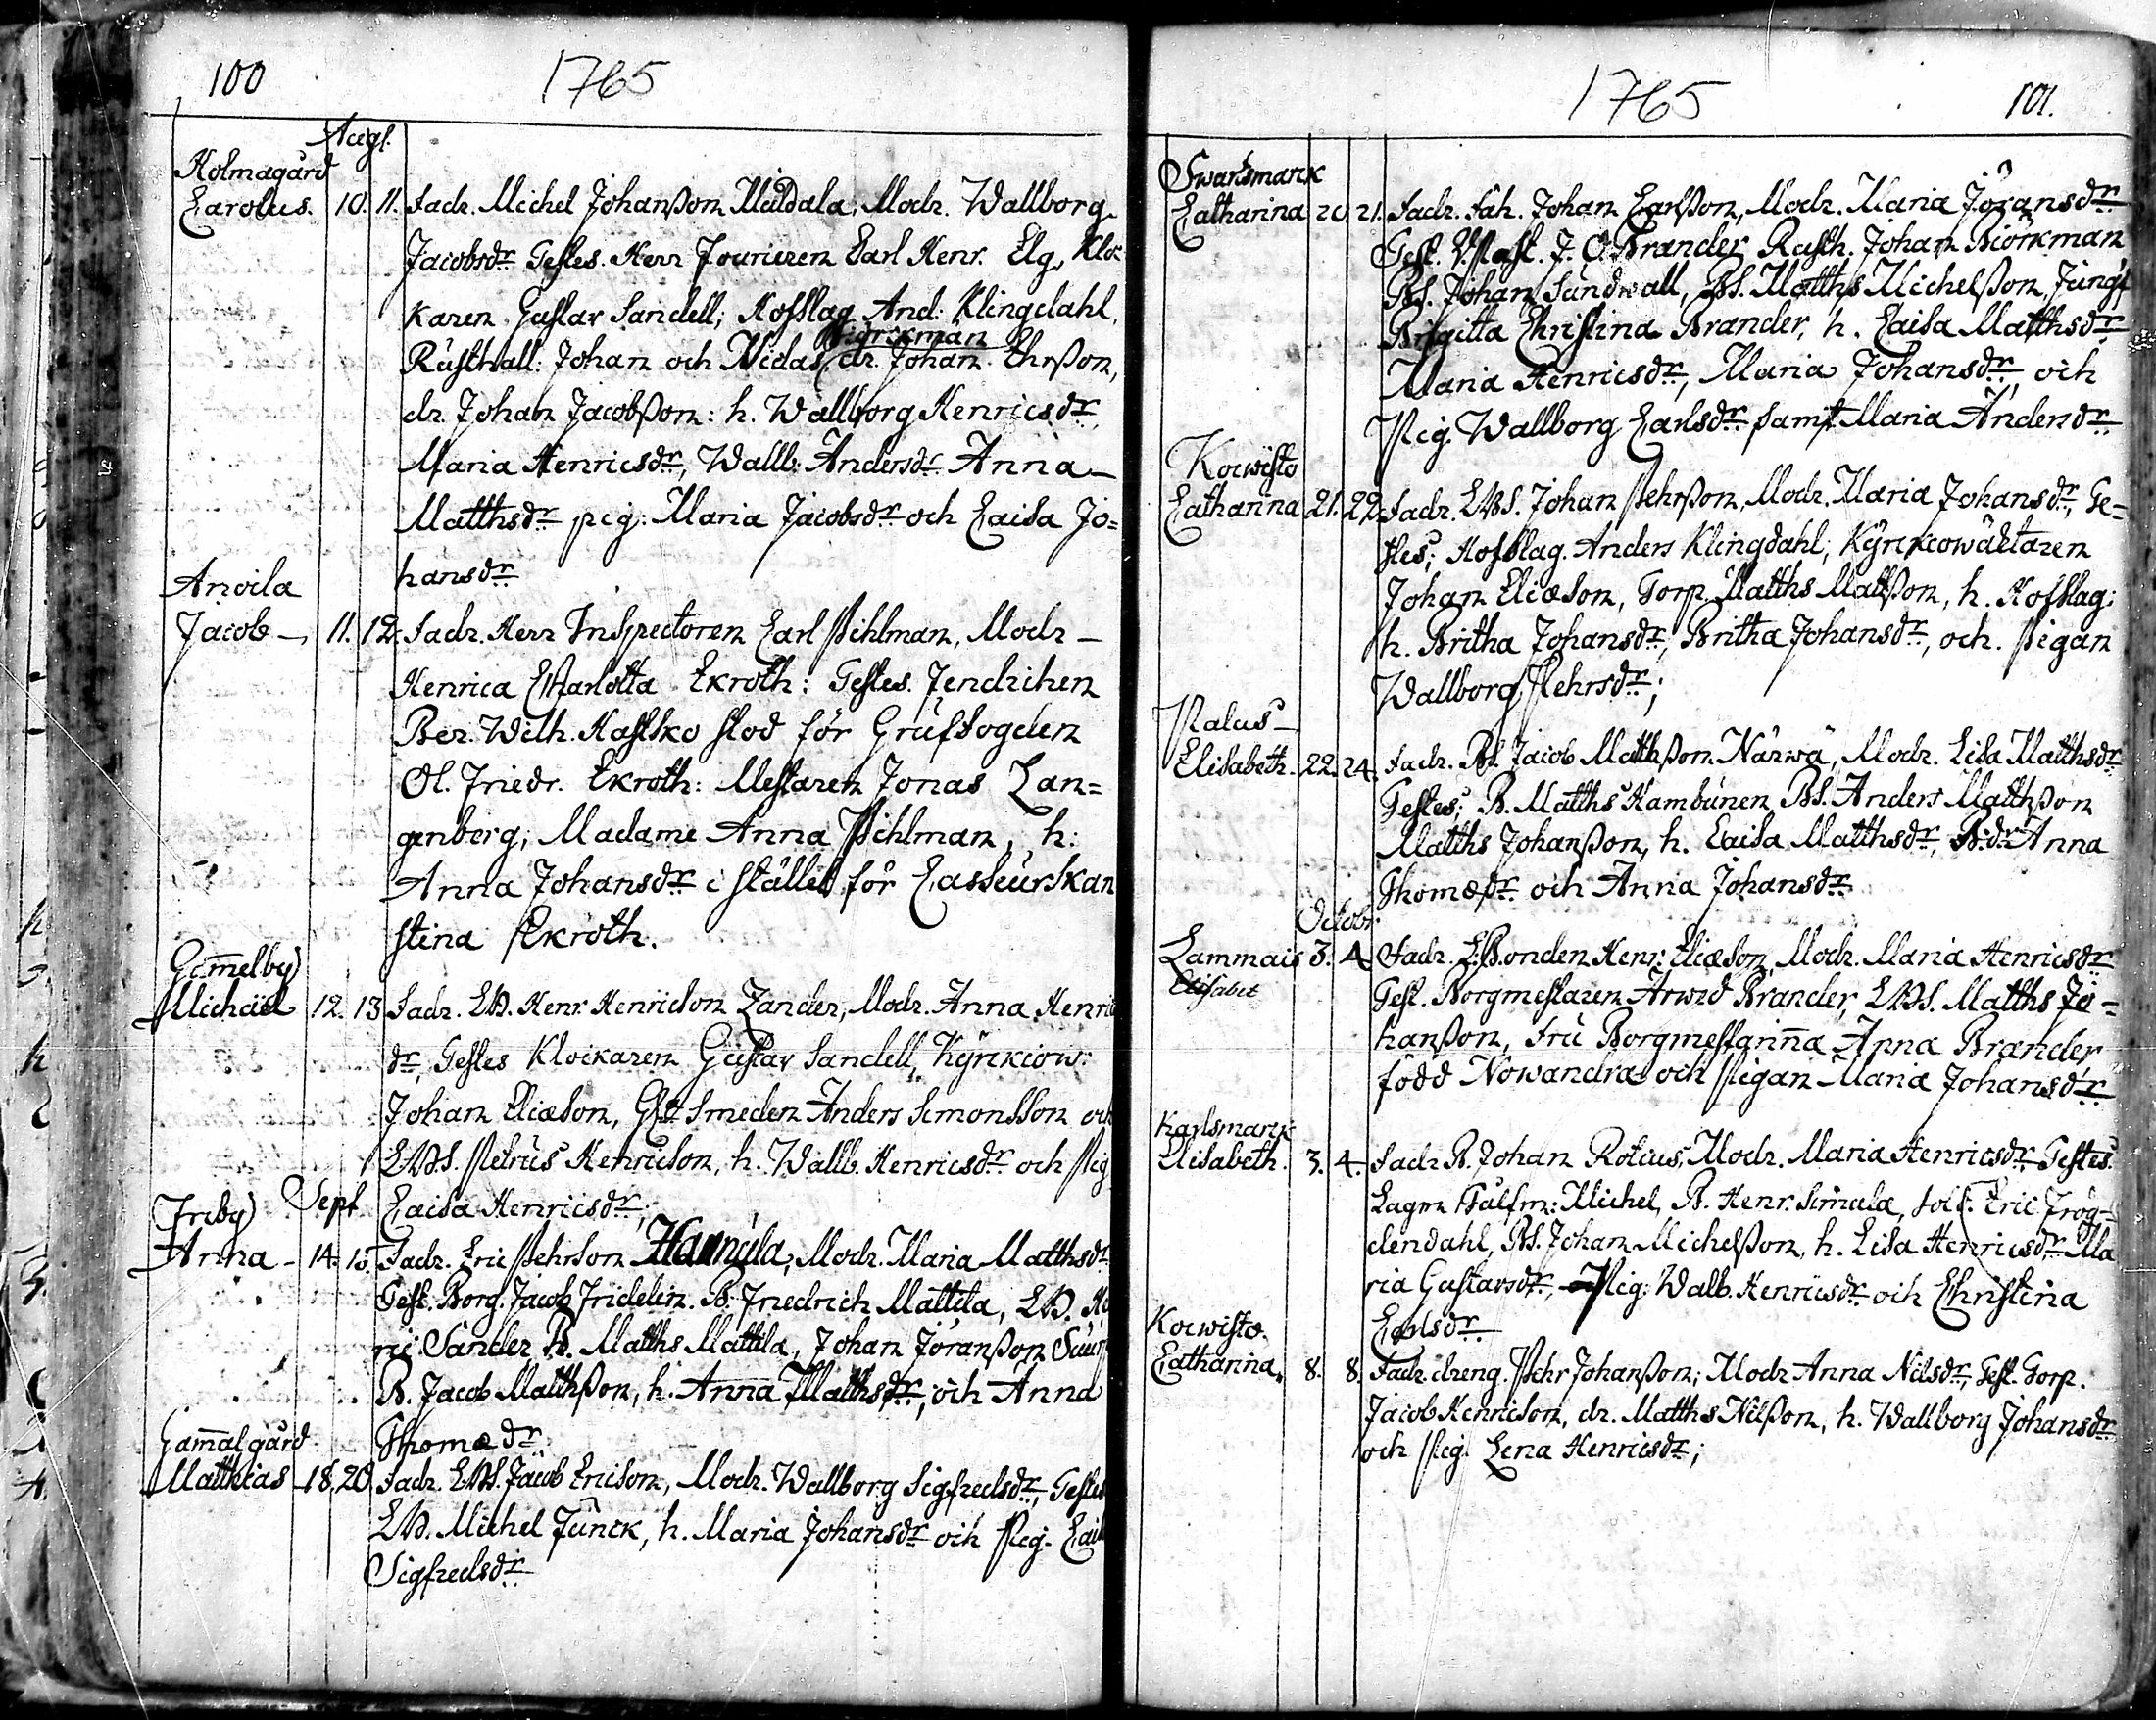 100
1765
Aug.
Holmagård
Carolus. 10. 11. Fadr. Michel Johanßon Middala, Modr. Wallborg
Jacobsdr Testes. Herr Fourieren Carl Henr. Elg, Kloc-
karen Gustav Sandell; Hofslag. And: Klingdahl,
Björckman
Rusthåll: Johan och Niclas, dr. Johan Ehrßon,
dr. Johan Jacobßon: h. Wallborg Henricsdr,
Maria Henricsdr, Wallb: Andersdr Anna
Matthsdr pig: Maria Jacobsdr och Caisa Jo=
hansdr
Anvila
Jacob - 11. 12. Fadr. Herr Inspectoren Carl Pihlman, Modr -
Henrica Charlotta Ekroth: Testes. Fendrichen
Ber. Wilh. Hastko stod för Gruffogden
Ol. Friedr. Ekroth: Mestaren Jonas Lan=
genberg; Madame Anna Pihlman, h:
Anna Johansdr i stället för Casseurskan
Stina Ekroth.
Gam̄elby
Michaël 12. 13 Fadr. LB. Henr. Henricson Zander, Modr. Anna Henric
dr, Testes Klockaren Gustav Sandell, Kyrckiow:
Johan Eliæson, Smeden Anders Simonsson och
LBS. Petrus Henricson, h. Wallb. Henricsdr och Pig
Caisa Henricsdr;
Sept
Freby
Anna - 14. 15. Fadr. Eric Pehrson Hannula, Modr. Maria Matthsdr
Test. Borg. Jacob Fridelin. B. Friedrich Mattila, LB. He
ric Sander B. Matths Mattila, Johan Jöranßon
B. Jacob Matthßon, h. Anna Matthsdr, och Anna
Thomædr
Gam̄algård
Matthias 18. 20. Fadr. LBS. Jacob Ericson, Modr. Wallborg Sigfredsdr, Testes
LB. Michel Junck, h. Maria Johansdr och Pig. Cais
Sigfredsdr
1765
101.
Swartsmarck
Catharina 20 21. Fadr. Joh. Johan Carlßon, Modr. Maria Jöransdr
Test. V.Past. J. O. Brander Rusth. Johan Biörkman
BS. Johan Sundwall, BS. Matths Michelßon, Jungf
Brigitta Christina Brander, h. Caisa Matthsdr
Maria Henricsdr, Maria Johansdr, och
Pig. Wallborg Carlsdr samt Maria Andersdr
Koiwisto
Catharina 21. 22. Fadr. LBS. Johan Pehrßon, Modr. Maria Johansdr, Te=
stes; Hofslag. Anders Klingdahl, Kyrckiowäktaren
Johan Eliæson, Torp. Matths Mattßon, h. Hofslag:
h. Britha Johansdr, Britha Johansdr, och. Pigan
Wallborg Pehrsdr;
Palus -
Elisabeth. 22. 24. Fadr. BS. Jacob Matthßon Närwä, Modr. Lisa Matthsdr
Testes; B. Matths Kambunen, BS. Anders Matthßon
Matths Johanßon, h. Caisa Matthsdr, B:dr Anna
Thomædr och Anna Johansdr
Octobr.
Lammais 3. 4. Fadr. L:Bonden Henr: Eliæson, Modr. Maria Henricsdr
Elisabet Test. Borgmestaren Arwed Brander, LBS. Matths Jo=
hanßon, Fru Borgmestarin̄a Anna Brander
född Nowandra och Pigan Maria Johansdr
Karlsmarck
Elisabeth. 3. 4. Fadr B. Johan Rotius, Modr. Maria Henricsdr Testes.
Lagm Michel, B. Henr. Simula, sold: Eric Frög-
dendahl, BS. Johan Michelßon, h. Lisa Henricsdr Ma
ria Gustavsdr, Pig: Walb. Henricsdr och Christina
Carlsdr
Koiwisto.
Catharina, 8. 8. Fadr. dreng. Pehr Johanßon; Modr Anna Nilsdr, Test. Torp.
Jacob Henricson, dr. Matths Nilßon, h. Wallborg Johansdr
och Pig. Lena Henricsdr;